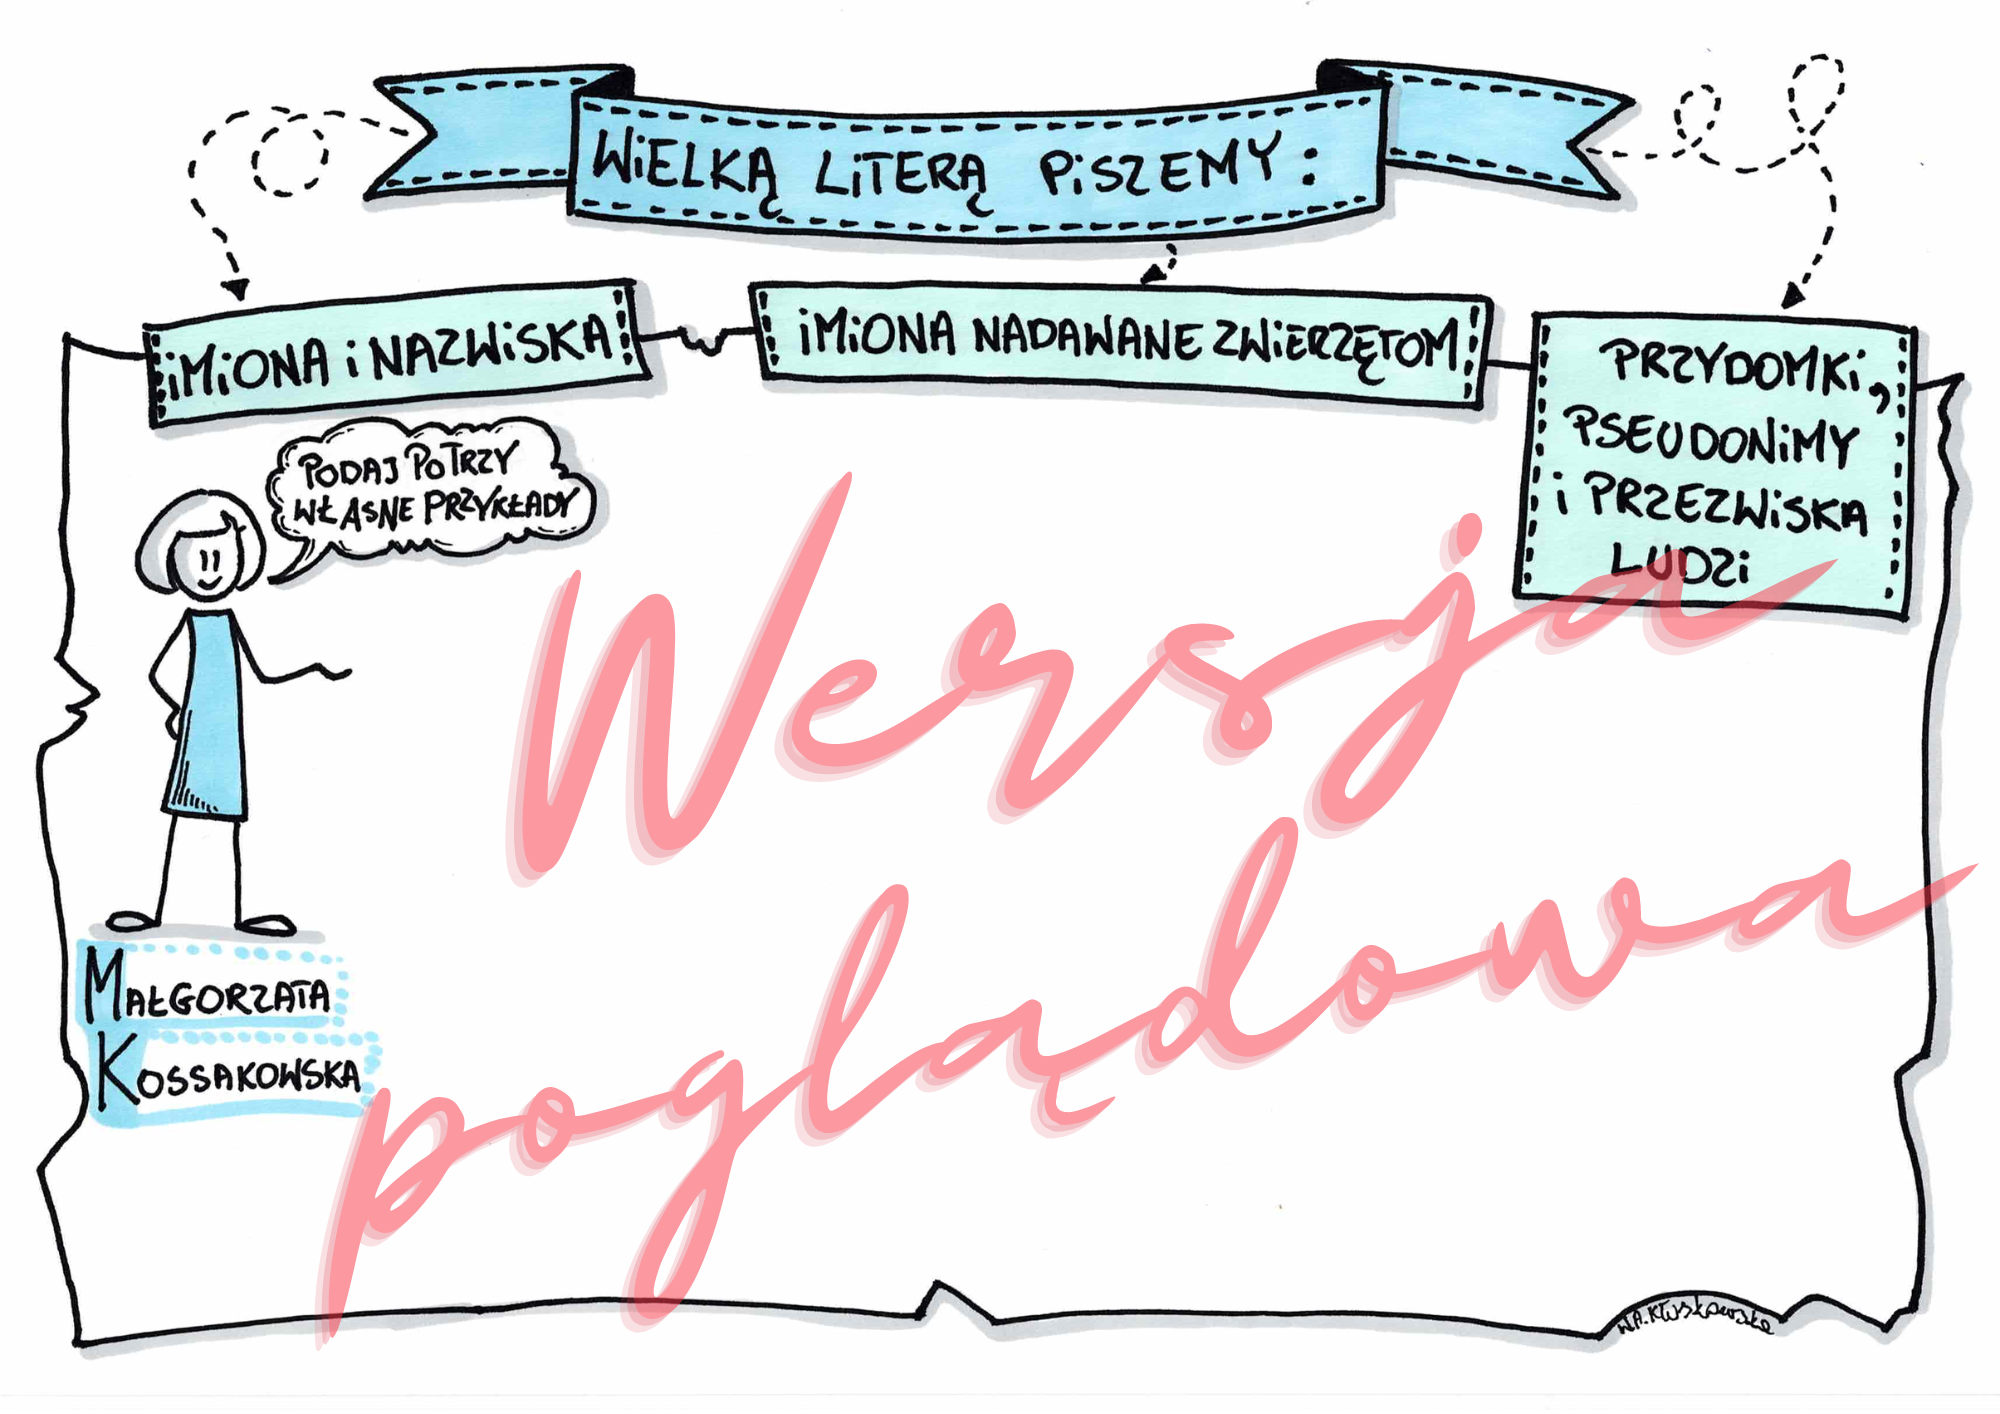 WIELKĄ LITERĄ PISZEMY:
IMIONA I NAZWISKA
IMIONA NADAWANE ZWIERZĘTOM
PRZYDOMKI,
PSEUDONIMY
I PRZEZWISKA
LUDZI
PODAJ PO TRZY
WŁASNE PRZYKŁADY
MAŁGORZATA
KOSSAKOWSKA
Wersja
poglądowa